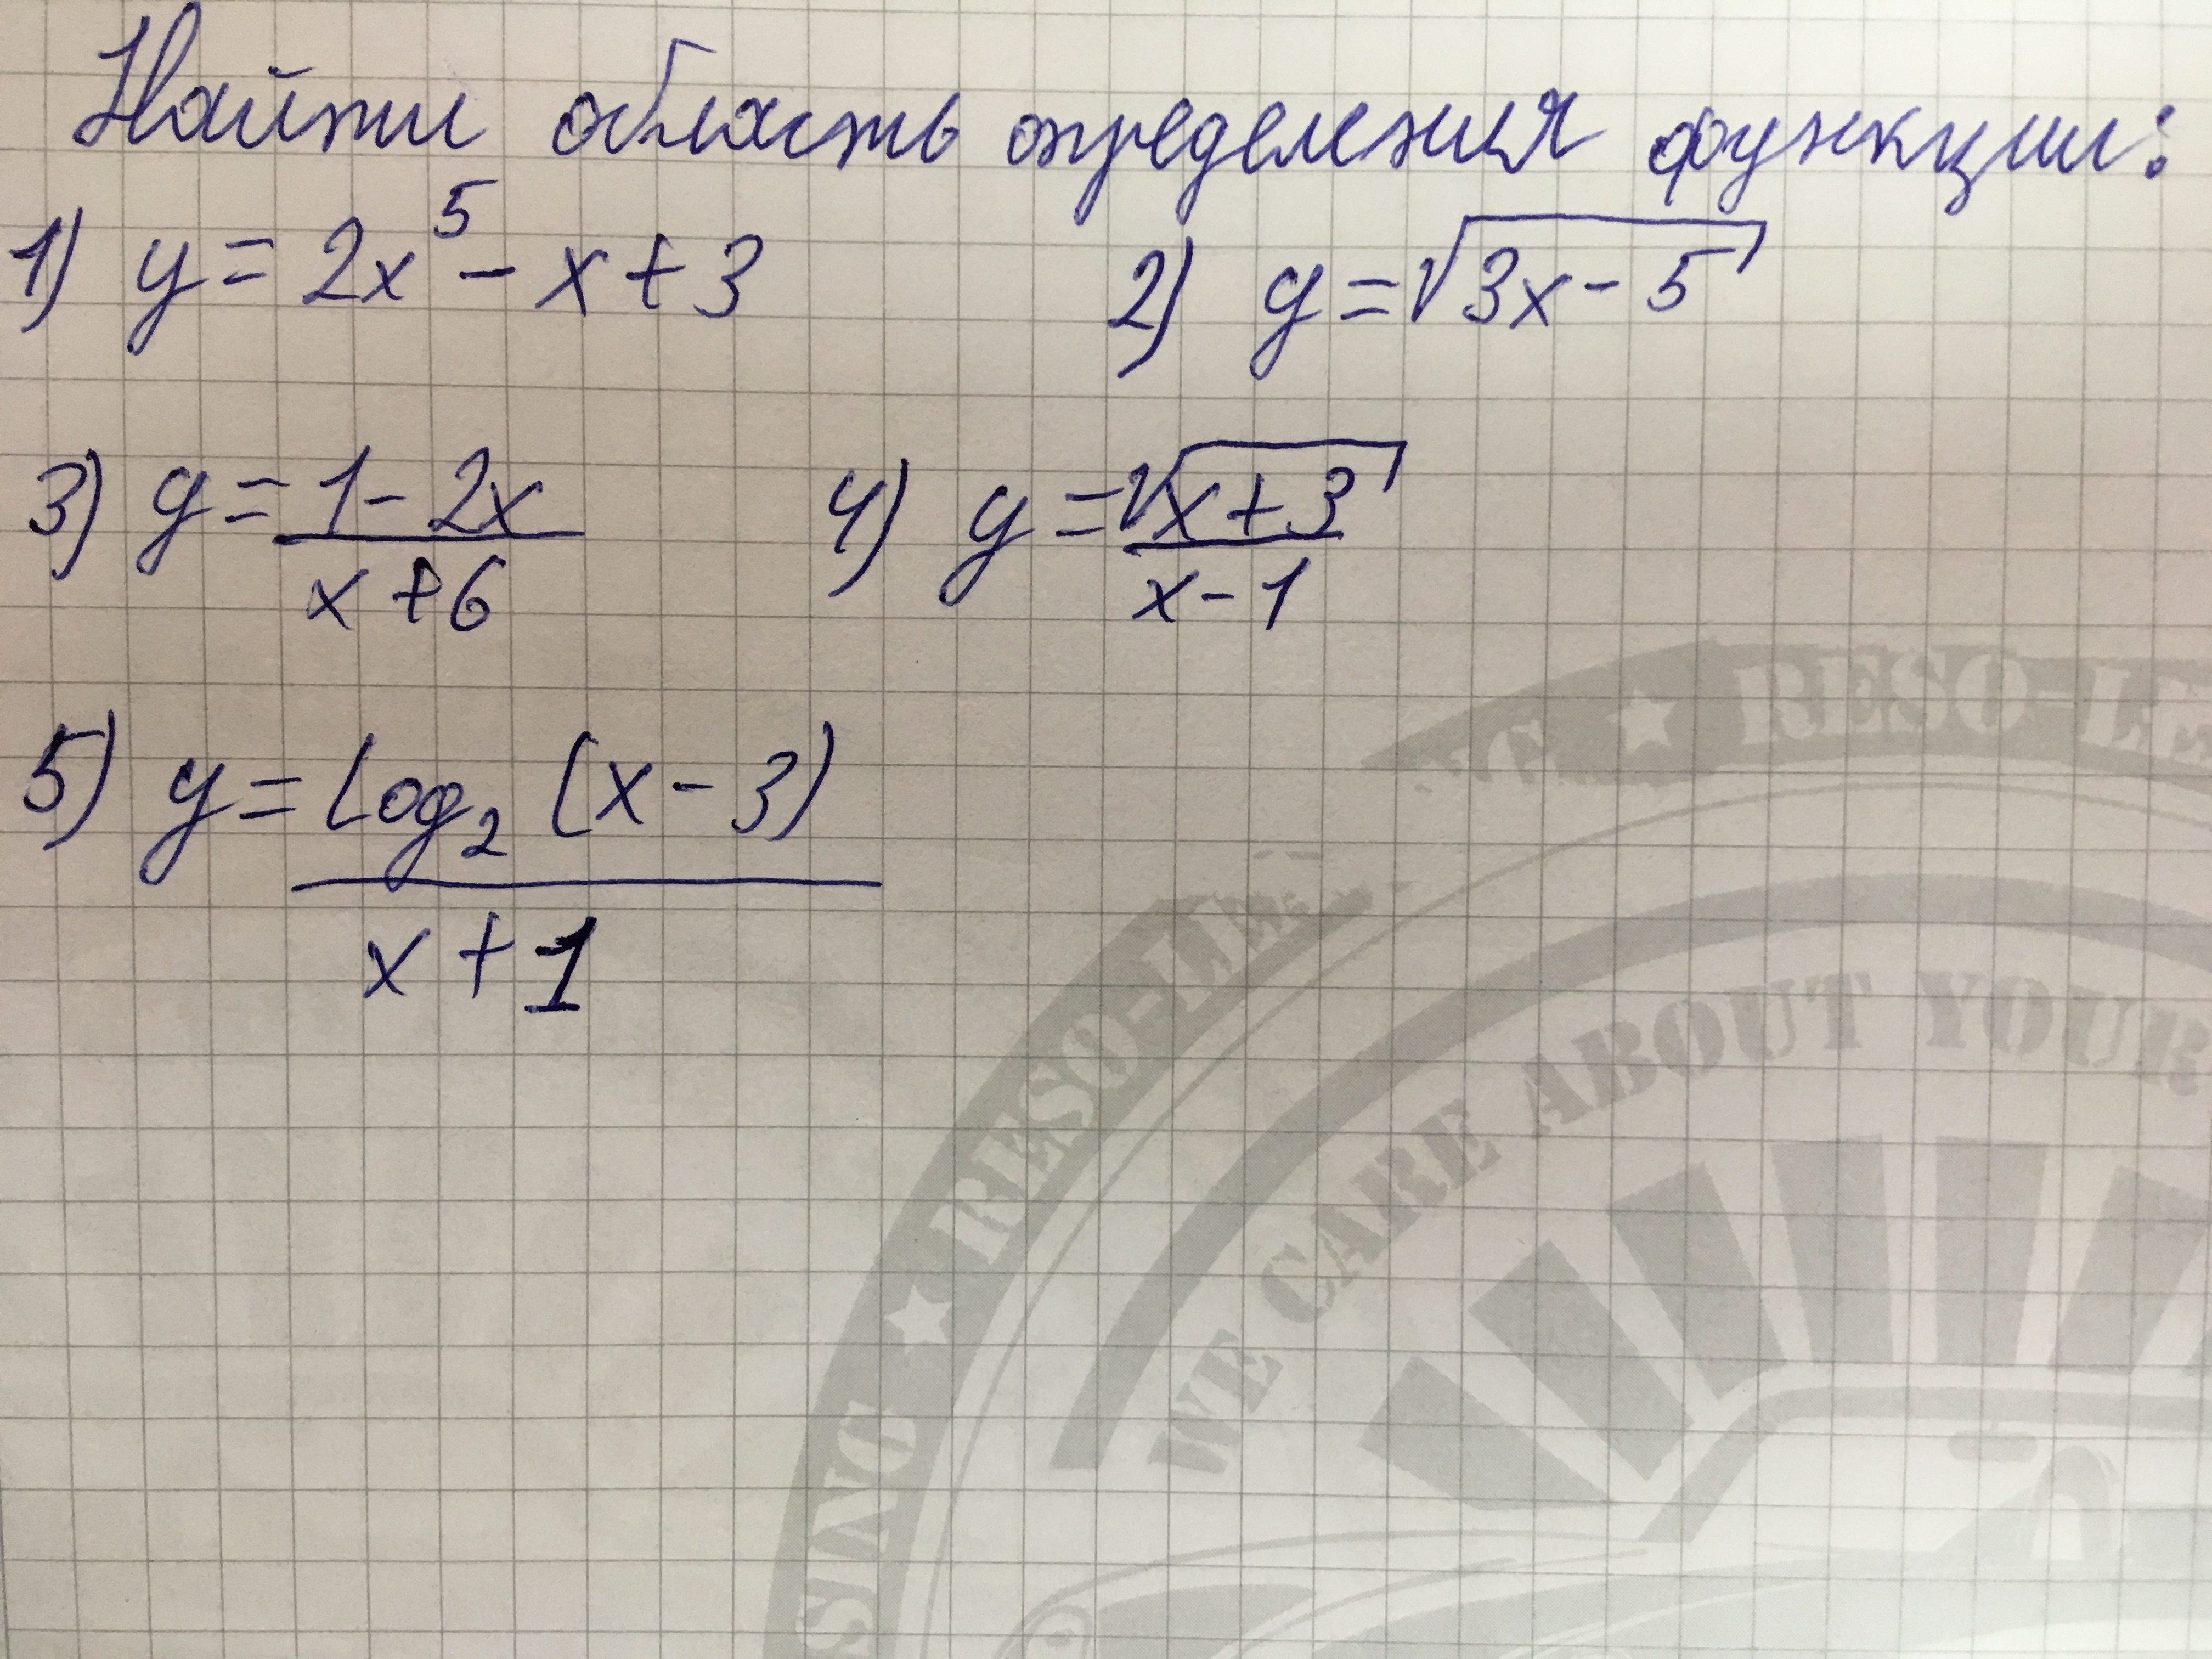 Найти область определения функции:
1) y = 2x⁵ - x + 3 2) y = √(3x - 5)
3) y = (1 - 2x)/(x + 6) 4) y = √(x + 3)/(x - 1)
5) y = log₂ (x - 3)/(x + 1)
RESO-LE
RESO-LI
WE CARE ABOUT YOUR
SING